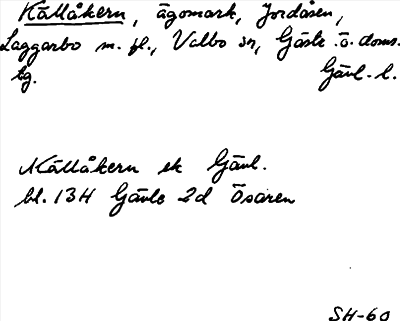 Källåkern, ägomark, Jordåsen,
Laggarbo m. fl., Valbo sn, Gästr. ö. doms.
lg. Gävl. l.
Källåkern ek Gävl.
bl. 13H Gävle 2d Ösaren
SH-60